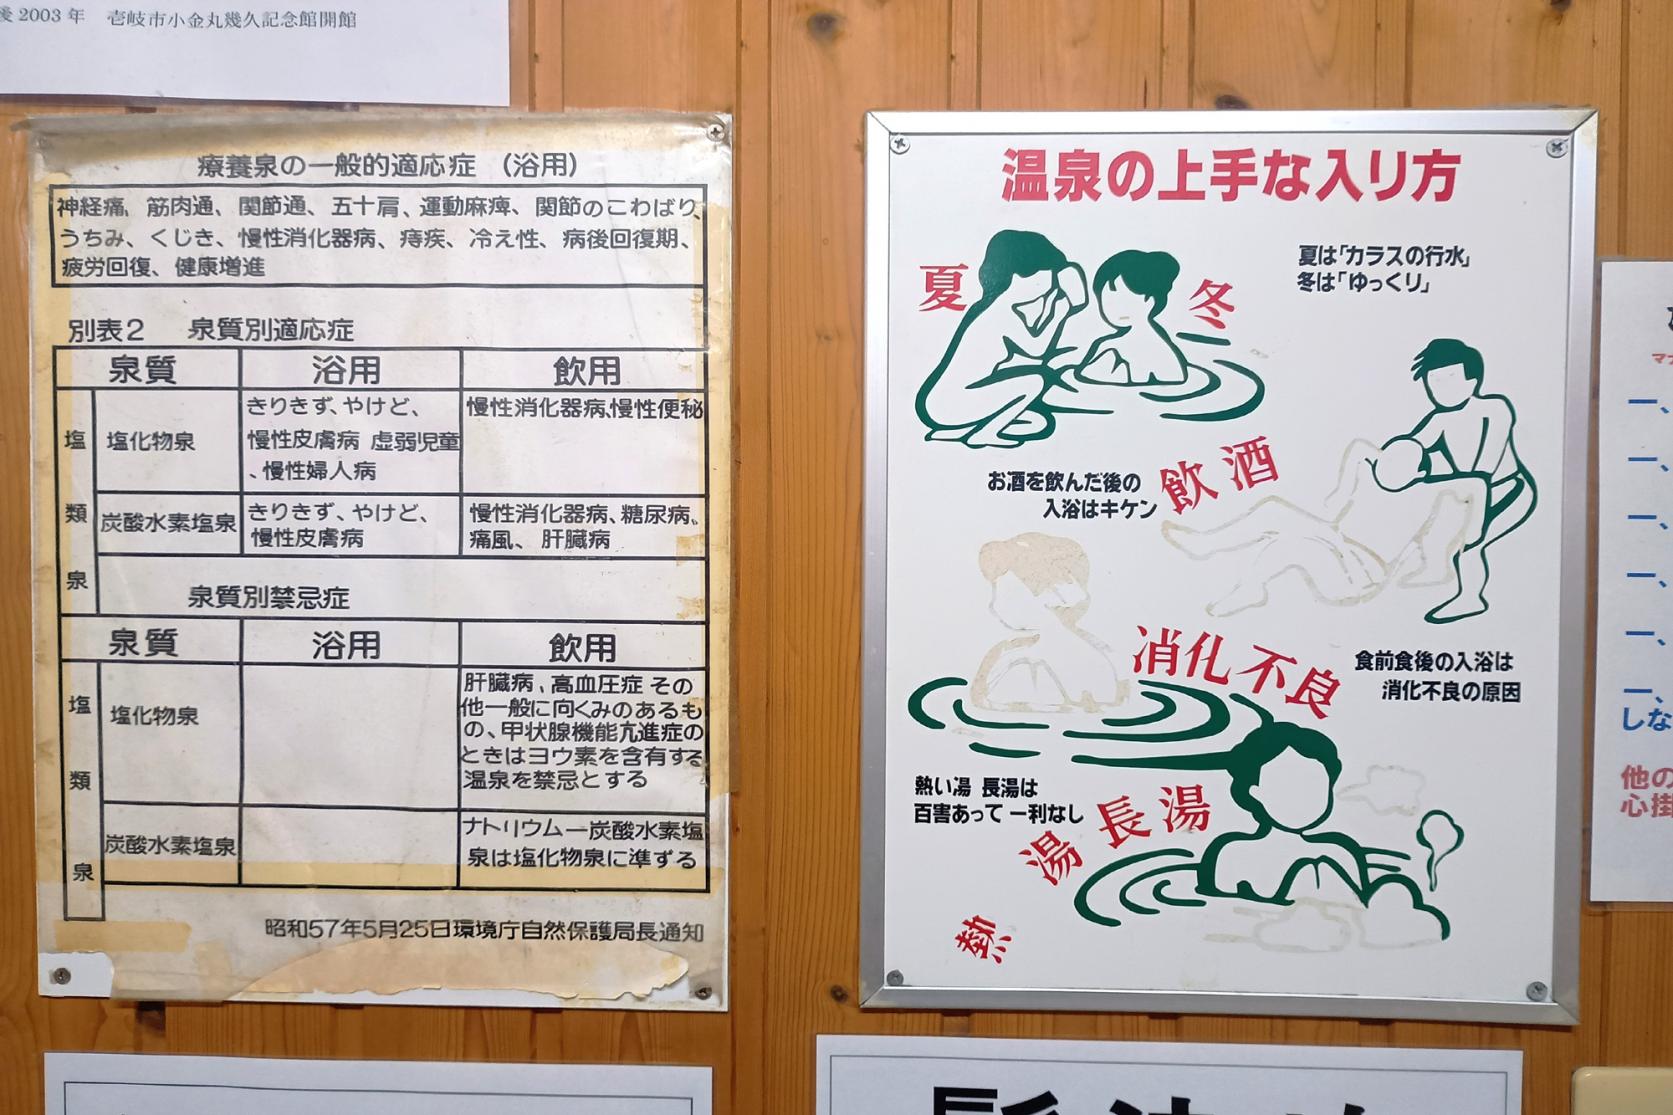 後2003年 壱岐市小金丸幾久記念館開館
療養泉の一般的適応症 (浴用)
神経痛、筋肉通、関節通、五十肩、運動麻痺、関節のこわばり、
うちみ、くじき、慢性消化器病、痔疾、冷え性、病後回復期、
疲労回復、健康増進
別表2 泉質別適応症
泉質 浴用 飲用
塩類泉
塩化物泉
きりきず、やけど、
慢性皮膚病 虚弱児童
、慢性婦人病
慢性消化器病、慢性便秘
炭酸水素塩泉
きりきず、やけど、
慢性皮膚病
慢性消化器病、糖尿病、
痛風、肝臓病
泉質別禁忌症
泉質 浴用 飲用
塩類泉
塩化物泉
肝臓病、高血圧症 その
他一般に向くみのあるも
の、甲状腺機能亢進症の
ときはヨウ素を含有する
温泉を禁忌とする
炭酸水素塩泉
ナトリウムー炭酸水素塩
泉は塩化物泉に準ずる
昭和57年5月25日環境庁自然保護局長通知
温泉の上手な入り方
夏
冬
夏は「カラスの行水」
冬は「ゆっくり」
お酒を飲んだ後の
入浴はキケン
飲酒
消化不良
食前食後の入浴は
消化不良の原因
熱い湯 長湯は
百害あって一利なし
熱湯長湯
一、
一、
一、
一、
一、
一、
しな
他の
心掛